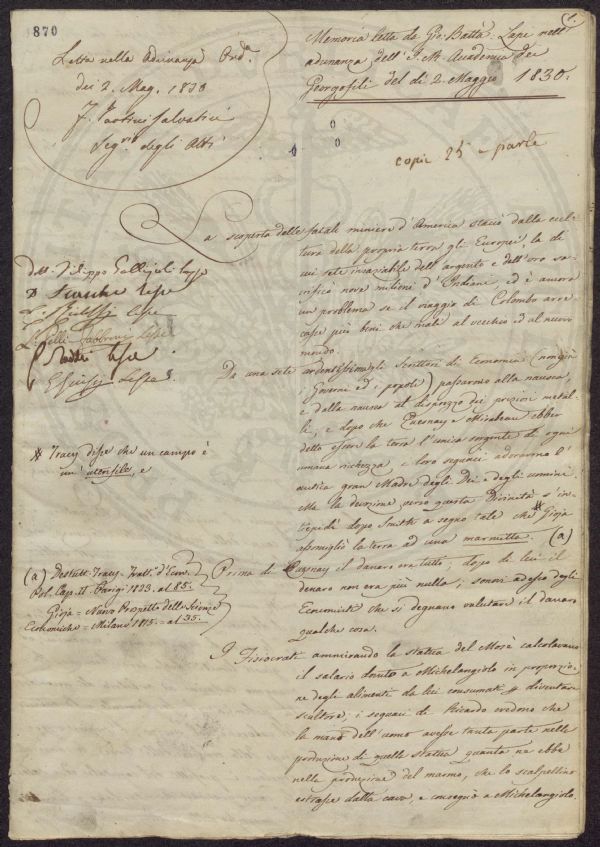 870
1.
Letta nella Adunanza Ord.ª
dei 2. Mag. 1830
F. Paolini Salvatici
Seg.rio degli Atti
Memoria letta da Gio: Batta. Lapi nell'
adunanza dell' I. R. Accademia dei
Georgofili del dì 2. Maggio 1830.
0
0 0
copie 25 a parte
La scoperta delle fatali miniere d'America staccò dalla col-
tura della propria terra gli Europei, la di
cui sete insaziabile dell'argento e dell'oro sa-
crificò nove milioni d'Indiani, ed è ancora
un problema se il viaggio di Colombo arre-
casse più beni che male al vecchio ed al nuovo
mondo.
Dott. Filippo Gallizioli lesse
lesse
lesse
L. Pelli Fabbroni lesse
lesse
lesse
Da una sete ardentissima gli Scrittori di Economia (non già
i Governi ed i popoli) passarono alla nausea,
e dalla nausea al disprezzo dei preziosi metal-
li, e dopo che Quesnay e Mirabeau ebber
detto essere la terra l'unica sorgente di ogni
umana ricchezza, i loro seguaci adorarono l'
antica gran Madre degli Dei e degli uomini.
Ma la devozione verso questa Divinità s'in-
tiepidì dopo Smith a segno tale che # Gioja
assomigliò la terra ad una marmitta. (a)
# Tracy disse che un campo è
un' utensile, e
Prima di Quesnay il danaro era tutto; dopo di lui il
denaro non era più nulla; sonvi adesso degli
Economisti che si degnano valutare il danaro
qualche cosa.
(a) Destutt-Tracy = Tratt. d'Econ.
Pol. Cap. II. Parigi 1823. al 85.
Gioja = Nuovo Prospetto delle Scienze
Economiche = Milano 1815. = al 35.
I Fisiocrati ammirando la statua del Mosè calcolavano
il salario dovuto a Michelangiolo in proporzio-
ne degli alimenti da lui consumati diventare
scultore, i seguaci di Ricardo credono che
la mano dell'uomo avesse tanta parte nella
produzione di quella statua quanta ne ebbe
nella produzione del marmo, che lo scalpellino
estrasse dalla cava, e consegnò a Michelangiolo.